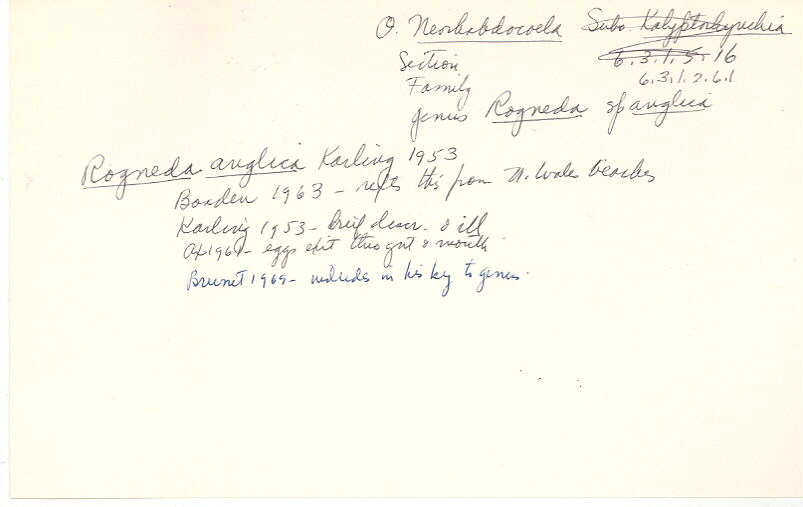 O. Neorhabdocoela Subo. Kalyptorhynchia
Section 6.3.1.5.16
Family 6.3.1.2.6.1
genus Rogneda sp anglica
Rogneda anglica Karling 1953
Boaden 1963 - repts this from N. Wales beaches
Karling 1953 - brief descr. & ill
Ax 1961 - eggs exit thro gut & mouth.
Brunet 1969 - includes in his key to genus.